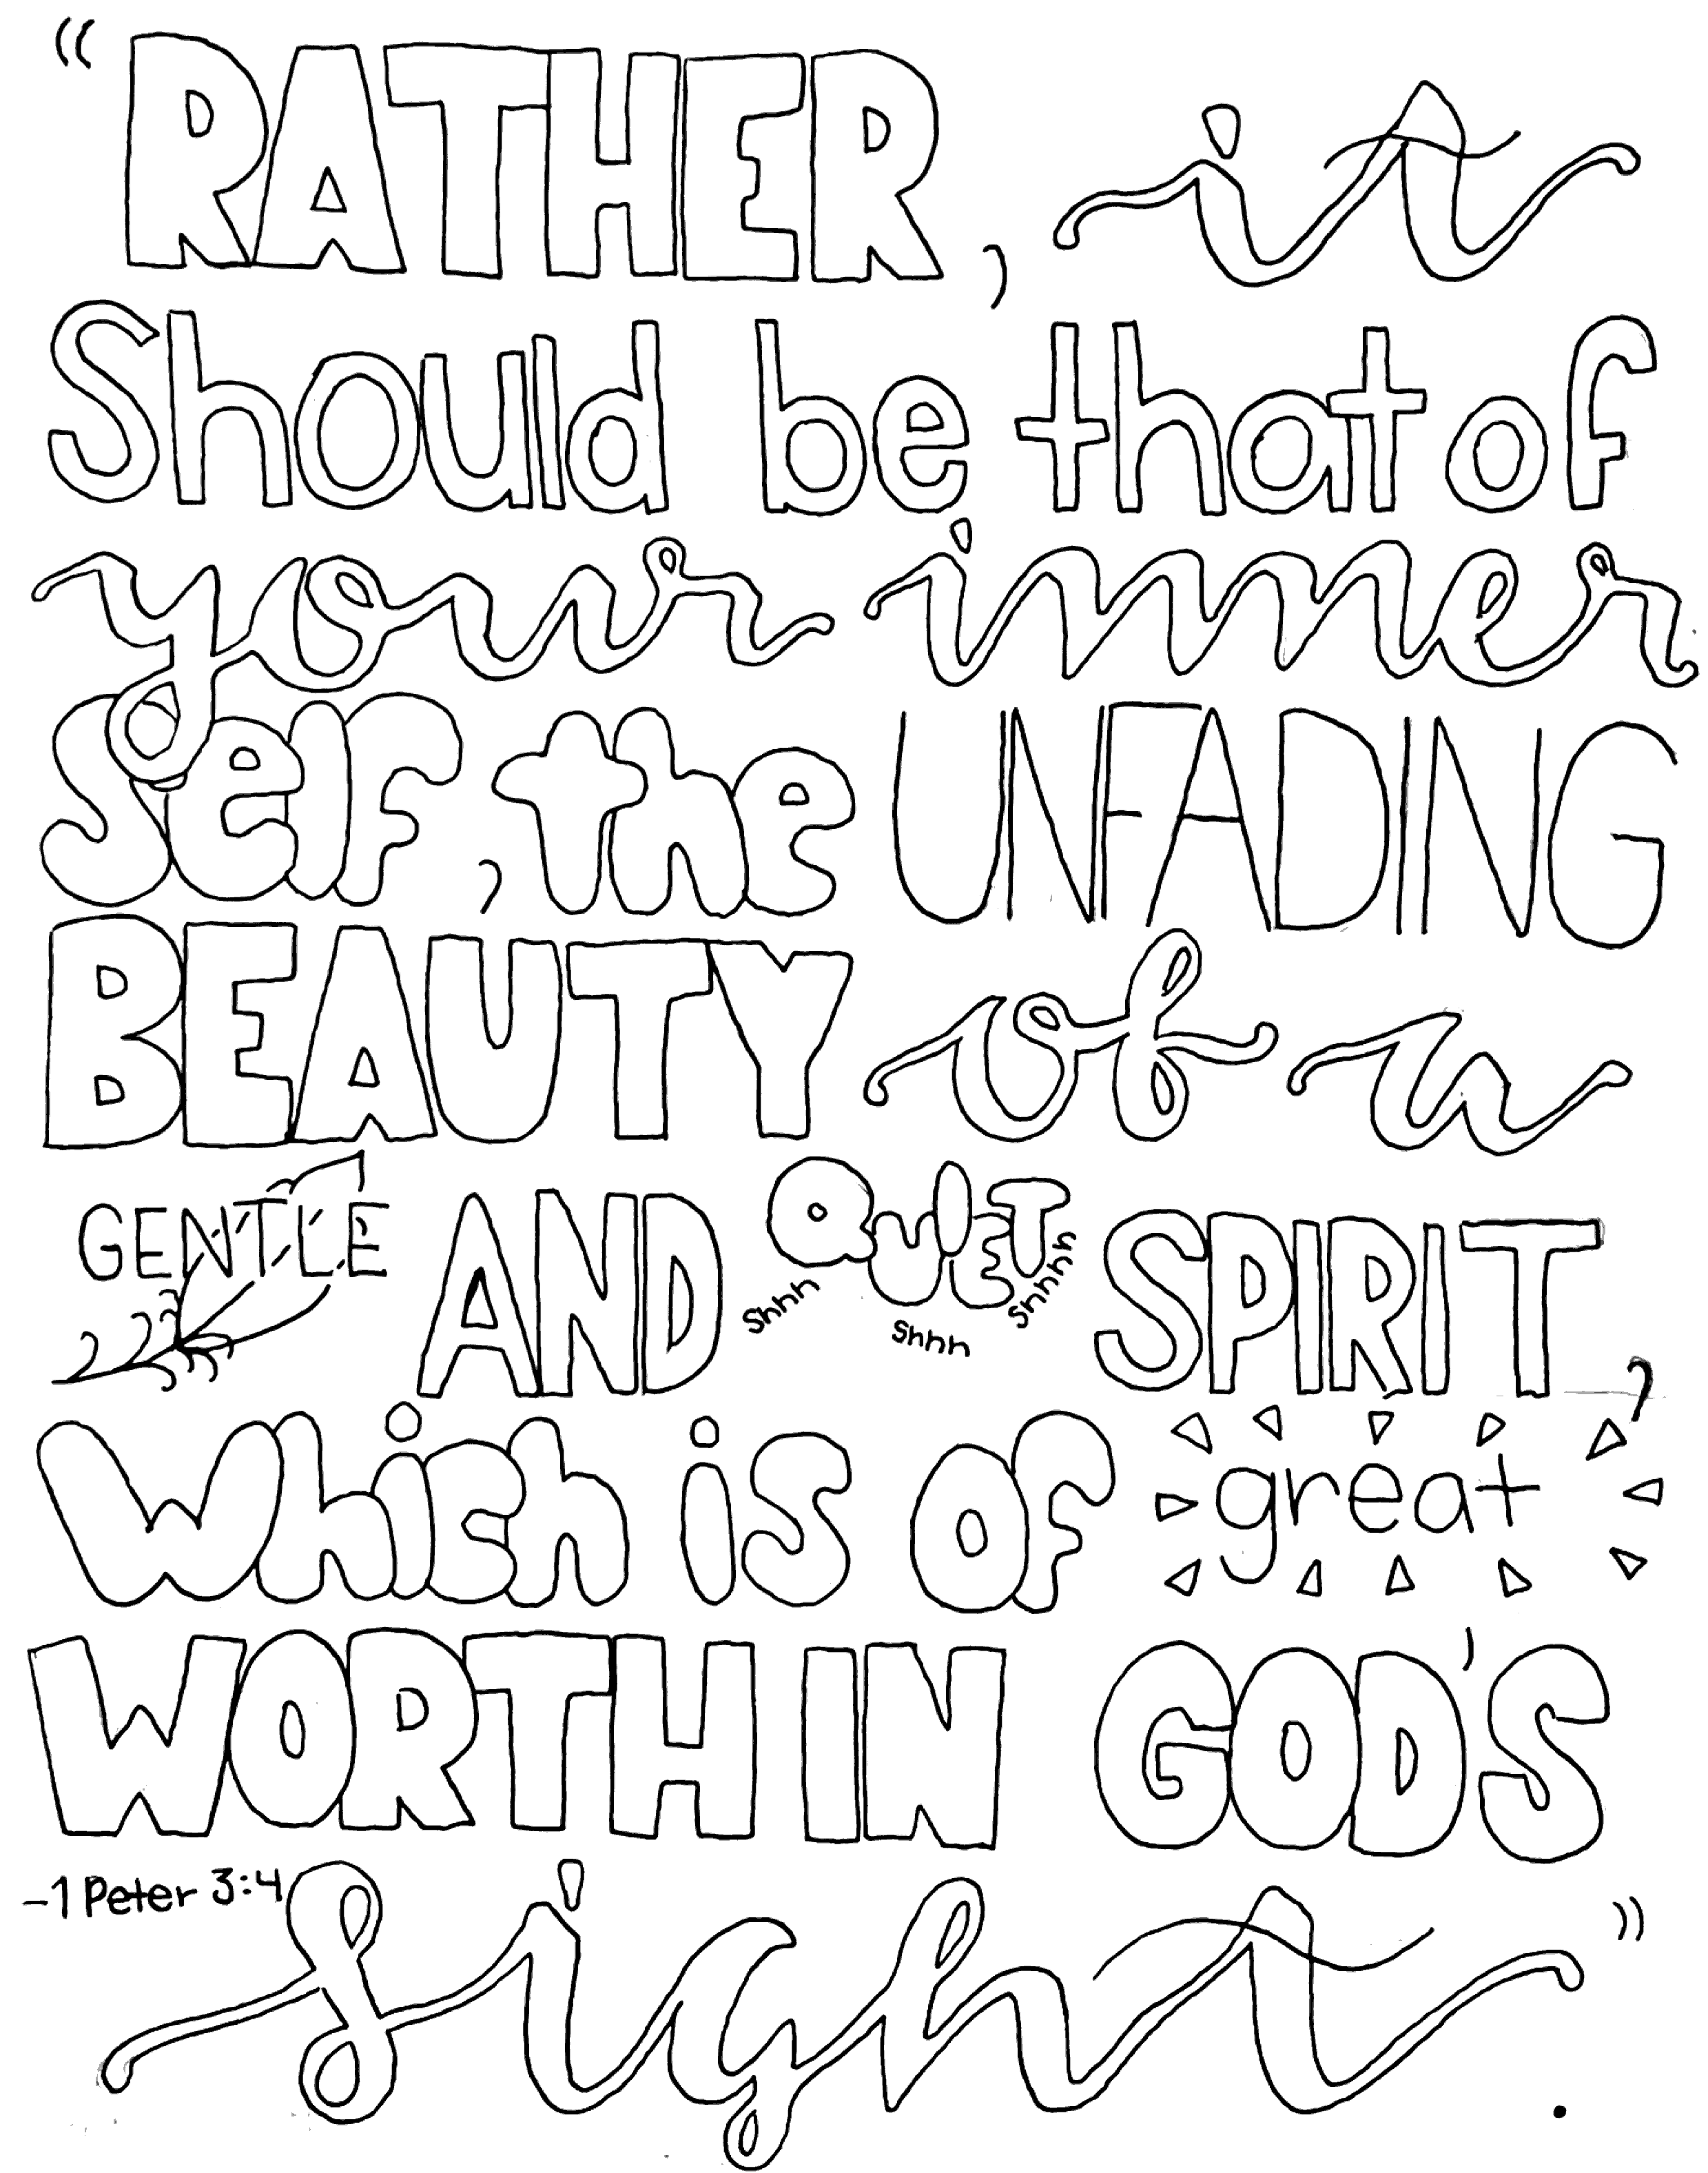 “RATHER, it
Should be that of
your inner
Self, the UNFADING
BEAUTY of a
GENTLE AND QUIET SPIRIT,
Shhh Shhh Shhhhh
which is OF great
WORTH IN GOD'S
-1 Peter 3:4
sight.”